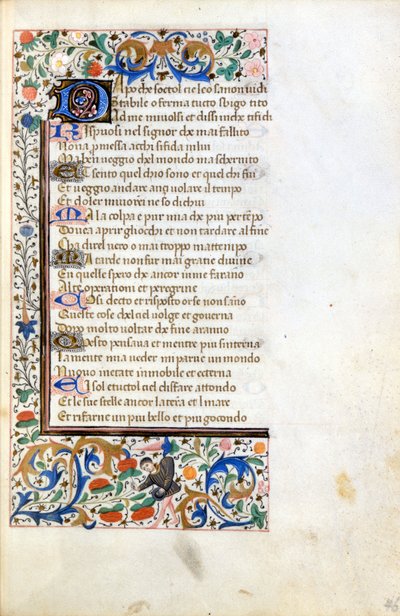 DA po che soctol cielo cosa non vidi
Stabile o ferma tucto sbigo tito
Ad me mi volsi et dissi inche tifidi
Rispuosi nel signor che mai fallito
Nona promessa achi sifida inlui
Ma ben veggio chel mondo ma schernito
Et sento quel chio sono et quel chi fui
Et veggio andare anzi volare il tempo
Et doler mi vorre ne so dichui
Ma la colpa e pur mia che piu per tempo
Dovea aprir ghocchi et non tardare al fine
Cha direl vero o mai troppo mattempo
Ma tarde non far mai gratie divine
En quelle spero che ancor inme farano
Alte operationi et peregrine
Cosi decto et risposto or se non sano
Queste cose chel ciel volge et governa
Dopo molto voltar che fine aranno
Questo pensava et mentre piu sinterna
La mente mia veder mi parne un mondo
Nuovo in etate immobile et eterna
El sol et tuctol ciel disfare attondo
Et le sue stelle ancor la terra et l mare
Et rifarne un piu bello et piu gocondo
46